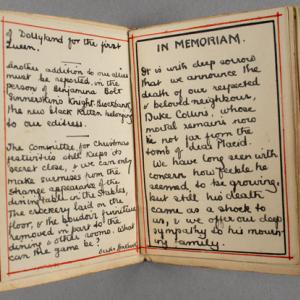 of Dollyland for the first
Queen.
Another addition to our allies
must be reported, in the
person of Benjamina Bolt
Knight
the new black Kitten belonging
to our editress.
The Committee for Christmas
festivities still keeps its
secrets close, & we can only
make surmises from the
strange appearance of the
dining table in the Stables.
The crockery laid on the
floor, & the boudoir furniture
removed in part to the
dining & other rooms. What
can the game be?
IN MEMORIAM.
It is with deep sorrow
that we announce the
death of our respected
& beloved neighbour,
Duke Collins, whose
mortal remains now
lie not far from the
tomb of dear Placid.
We have long seen with
concern how feeble he
seemed, to be growing,
but still his death
came as a shock to
us, & we offer our deep
sympathy to his mourn-
ing family.